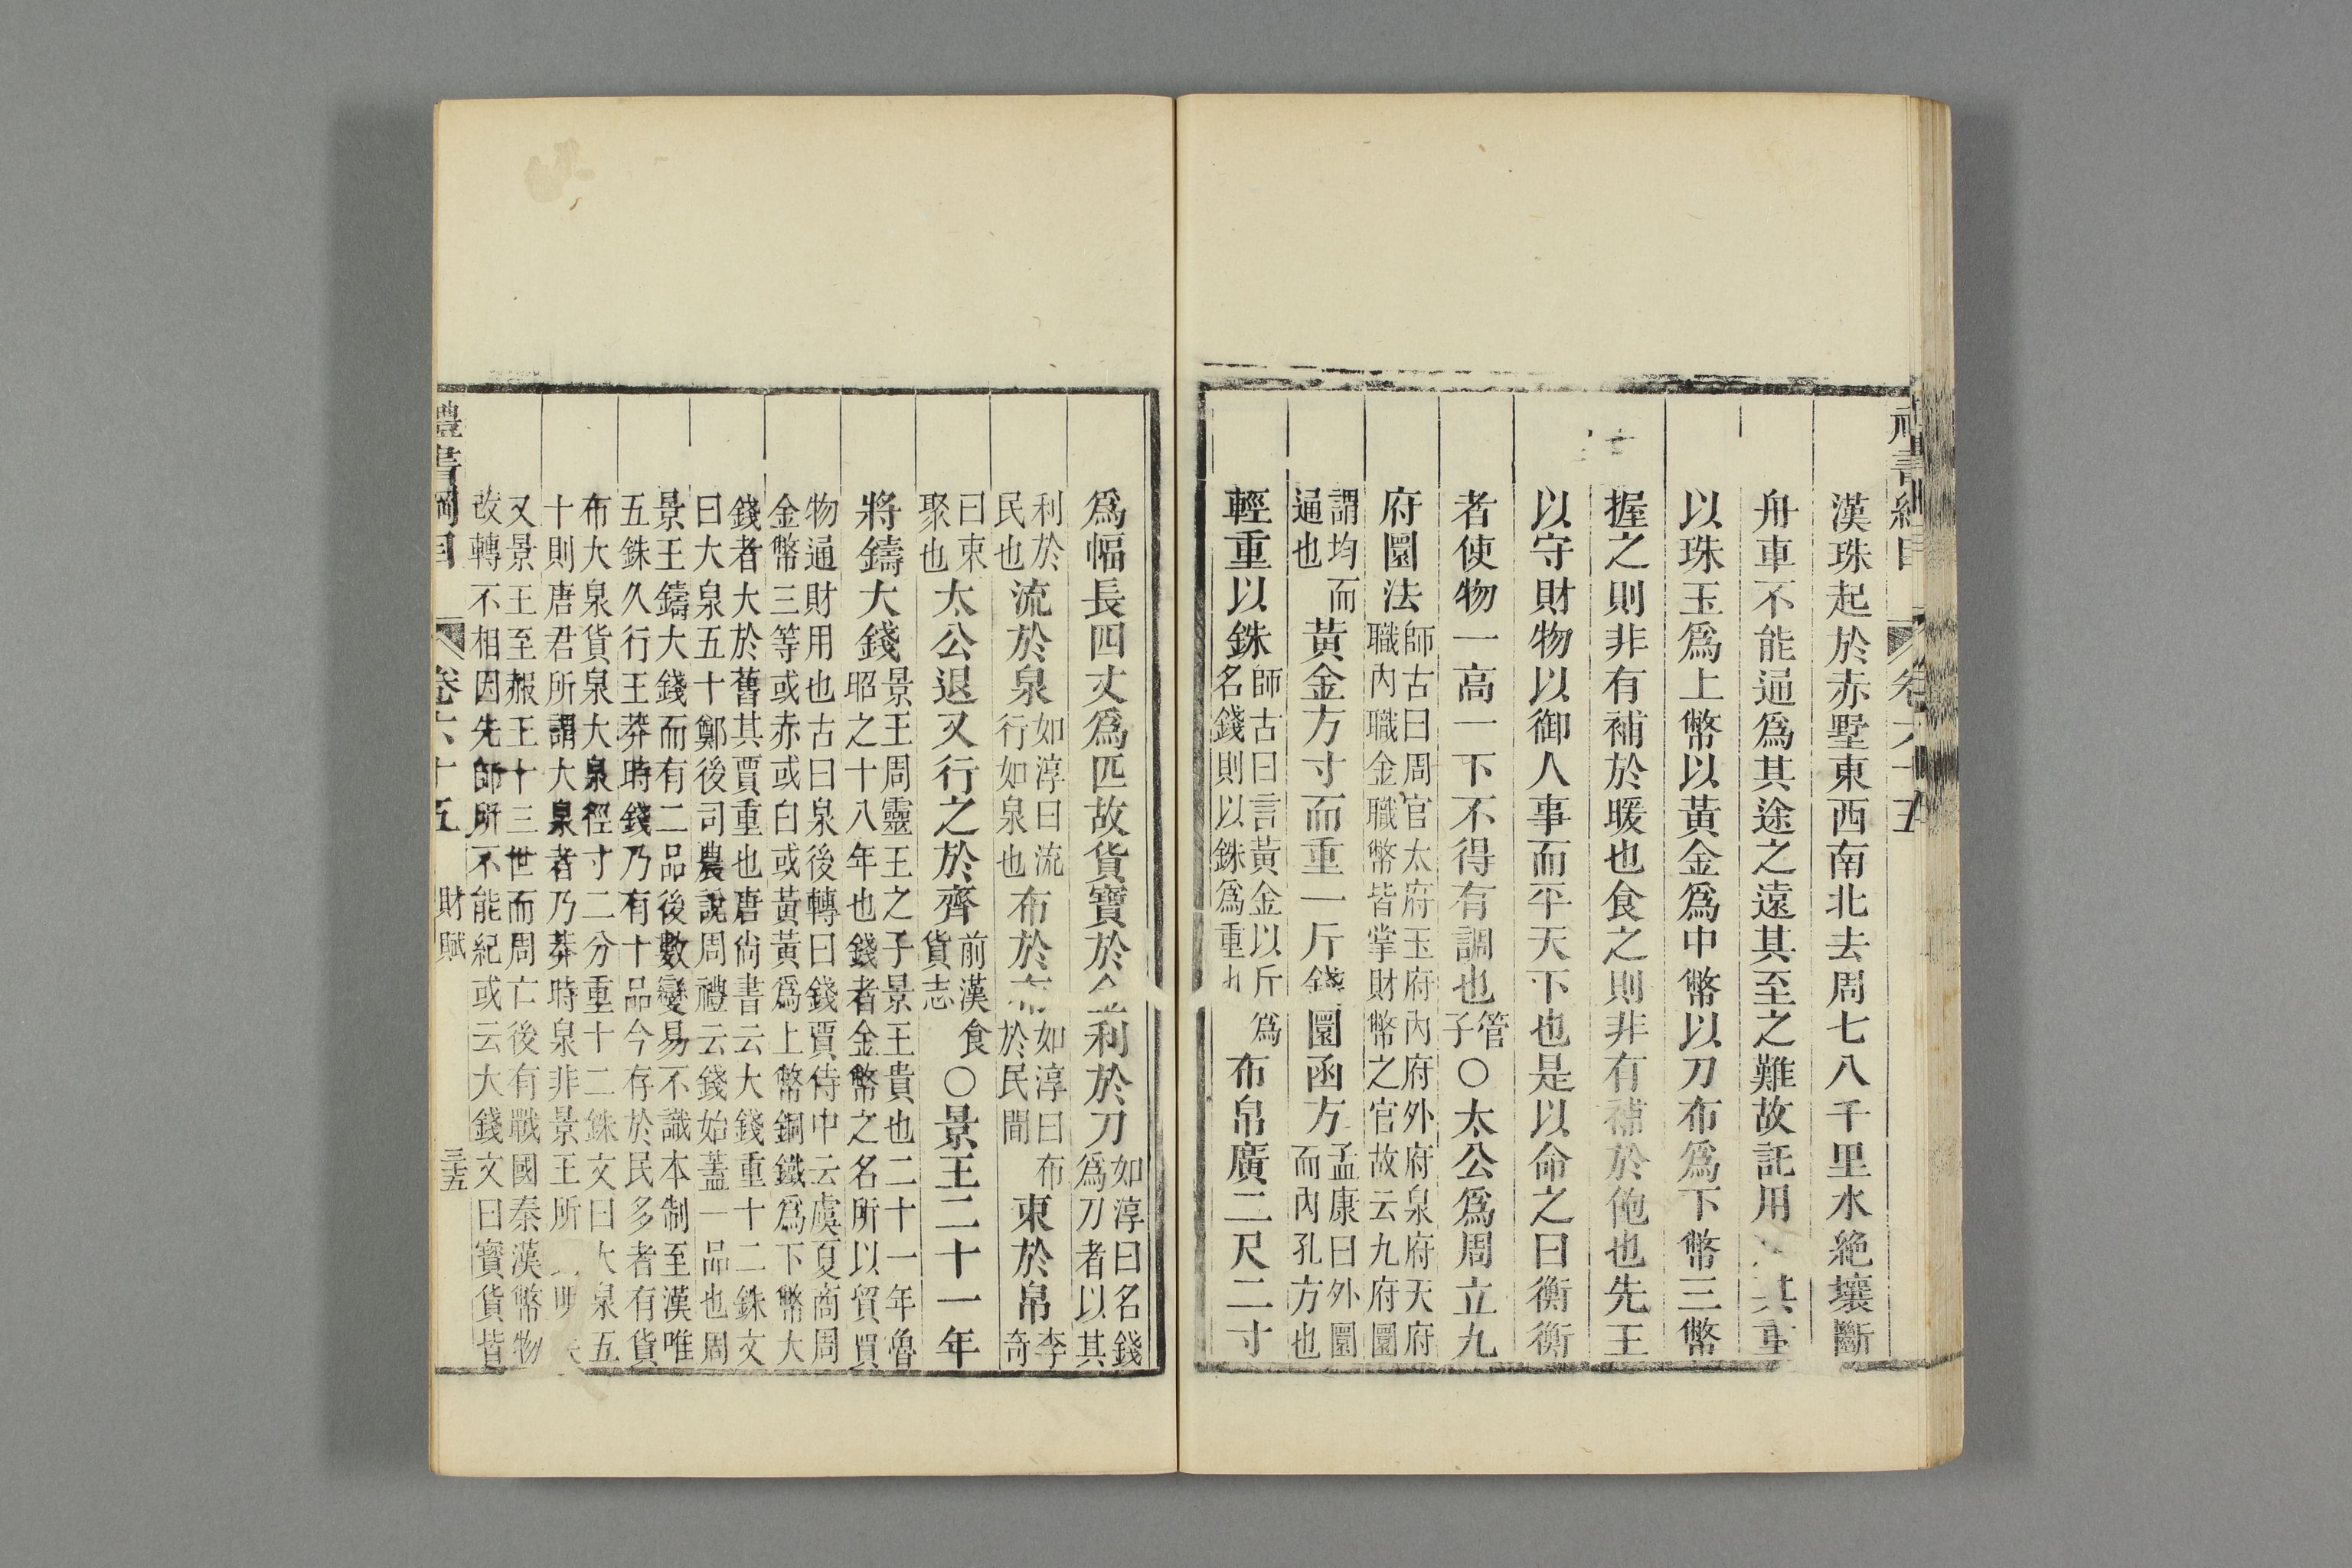 漢珠起於赤墅東西南北去周七八千里水絶壤斷
舟車不能通爲其途之遠其至之難故託用其重
以珠玉爲上幣以黃金爲中幣以刀布爲下幣三幣
握之則非有補於暖也食之則非有補於飽也先王
以守財物以御人事而平天下也是以命之曰衡衡
者使物一高一下不得有調也管子○太公爲周立九
府圜法師古曰周官太府玉府內府外府泉府天府職內職金職幣皆掌財幣之官故云九府圜
謂均而通也黃金方寸而重一斤錢圜函方孟康曰外圜而內孔方也
輕重以銖師古曰言黃金以斤爲名錢則以銖爲重也布帛廣二尺二寸
爲幅長四丈爲匹故貨寶於金利於刀如淳曰名錢爲刀者以其
利於民也流於泉如淳曰流行如泉也布於布如淳曰布於民間束於帛李奇
曰束聚也太公退又行之於齊前漢食貨志○景王二十一年
將鑄大錢景王周靈王之子景王貴也二十一年魯昭之十八年也錢者金幣之名所以貿買
物通財用也古曰泉後轉曰錢賈侍中云虞夏商周金幣三等或赤或白或黃黃爲上幣銅鐵爲下幣大
錢者大於舊其賈重也唐尙書云大錢重十二銖文曰大泉五十鄭後司農說周禮云錢始蓋一品也周
景王鑄大錢而有二品後數變易不識本制至漢唯五銖久行王莽時錢乃有十品今存於民多者有貨
布大泉貨泉大泉徑寸二分重十二銖文曰大泉五十則唐君所謂大泉者乃莽時泉非景王所明
又景王至赧王十三世而周亡後有戰國秦漢幣物改轉不相因先師所不能紀或云大錢文曰寶貨皆
禮書綱目 卷六十五 財賦 三十五